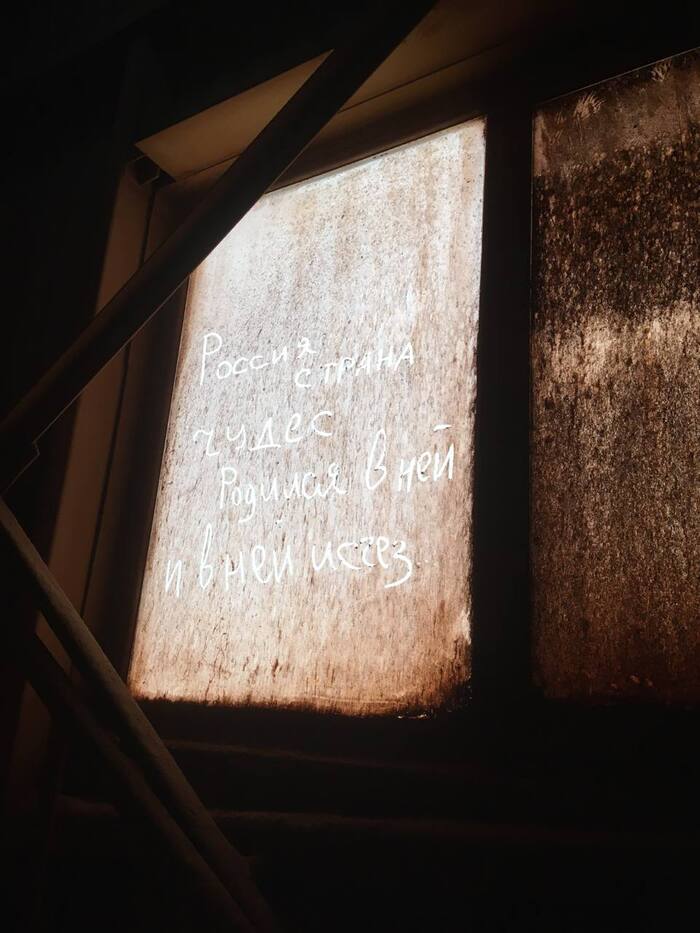 Россия
страна
чудес
Родился в ней
и в ней исчез